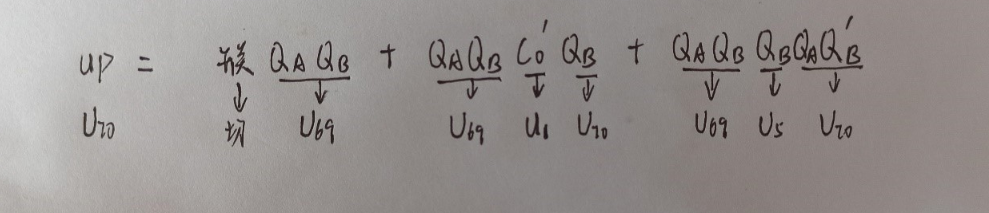 up = 模 QAQB + QAQB Co' QB + QAQB QB QAQB'
↓ ↓ ↓ ↓ ↓ ↓ ↓ ↓
U70 切 U69 U69 U1 U70 U69 U5 U70